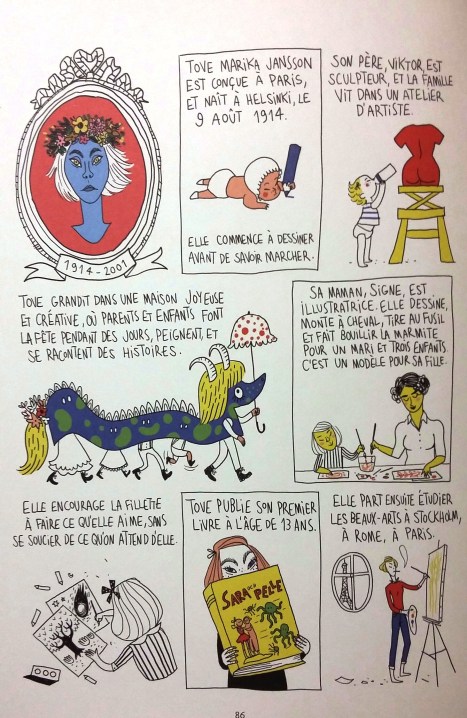 1914-2001
TOVE MARIKA JANSSON
EST CONÇUE À PARIS,
ET NAÎT À HELSINKI, LE
9 AOÛT 1914.
ELLE COMMENCE À DESSINER
AVANT DE SAVOIR MARCHER.
SON PÈRE, VIKTOR, EST
SCULPTEUR, ET LA FAMILLE
VIT DANS UN ATELIER
D'ARTISTE.
TOVE GRANDIT DANS UNE MAISON JOYEUSE
ET CRÉATIVE, OÙ PARENTS ET ENFANTS FONT
LA FÊTE PENDANT DES JOURS, PEIGNENT, ET
SE RACONTENT DES HISTOIRES.
SA MAMAN, SIGNE, EST
ILLUSTRATRICE. ELLE DESSINE,
MONTE À CHEVAL, TIRE AU FUSIL
ET FAIT BOUILLIR LA MARMITE
POUR UN MARI ET TROIS ENFANTS.
C'EST UN MODÈLE POUR SA FILLE.
ELLE ENCOURAGE LA FILLETTE
À FAIRE CE QU'ELLE AIME, SANS
SE SOUCIER DE CE QU'ON ATTEND D'ELLE.
TOVE PUBLIE SON PREMIER
LIVRE À L'ÂGE DE 13 ANS.
SARA
PELLE
ELLE PART ENSUITE ÉTUDIER
LES BEAUX-ARTS À STOCKHOLM,
À ROME, À PARIS.
86